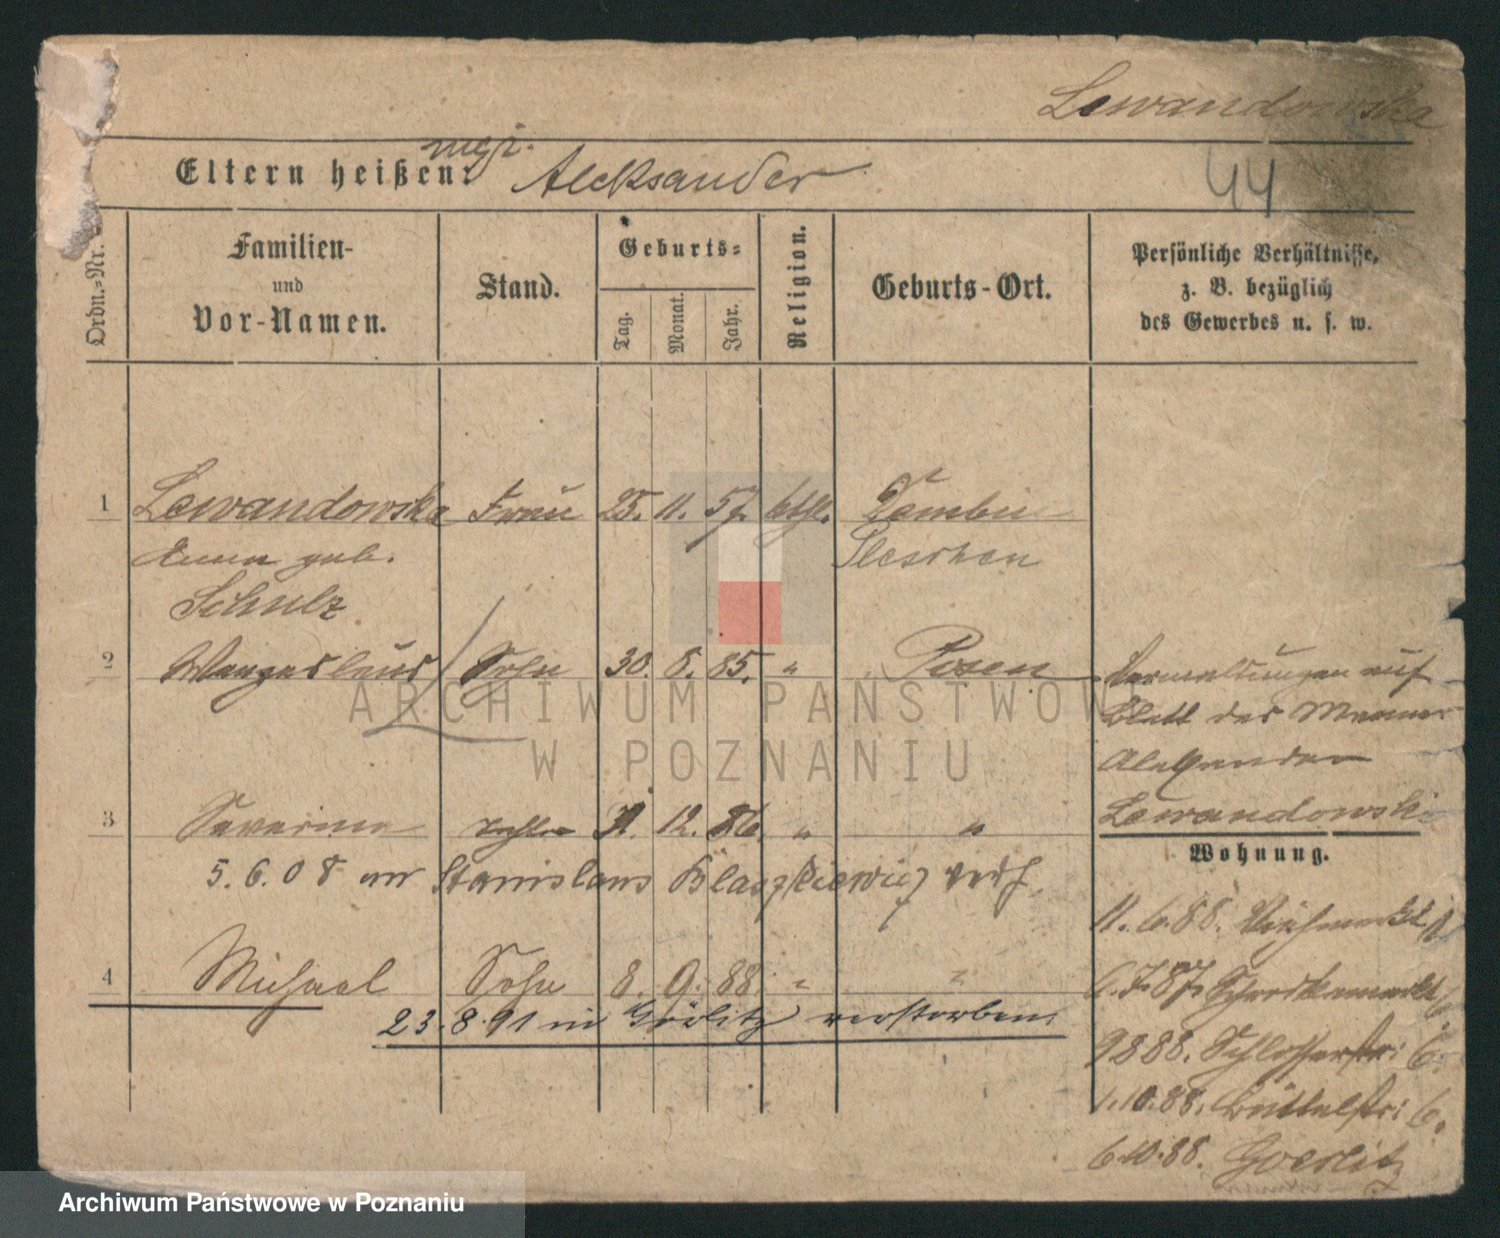 Lewandowska
Eltern heißen: Aleksander
44
Ordn.-Nr.
Familien-
und
Vor-Namen.
Stand.
Geburts-
Tag.
Monat.
Jahr.
Religion.
Geburts-Ort.
Persönliche Verhältnisse,
z. B. bezüglich
des Gewerbes u. s. w.
1 Lewandowska Frau 25. 11. 57. kthl. Dembin
Anna geb. Pleschen
Schulz
2 Sohn 30. 8. 85. " Posen
Vermeldungen auf
Blatt des Mannes
Alexander
Lewandowski
3 Severina Tochter 31. 12. 86. " "
Wohnung.
5. 6. 08 mit Stanislaus Blaszkiewicz verh.
11. 6. 88. Viehmarkt
4 Michael Sohn 8. 9. 88. " "
23.8.91 in Görlitz verstorben.
9 8 88. Schlosserstr: 6.
1.10.88. Büttelstr: 6.
6.10.88. Goerlitz
ARCHIWUM PAŃSTWOWE
W POZNANIU
Archiwum Państwowe w Poznaniu